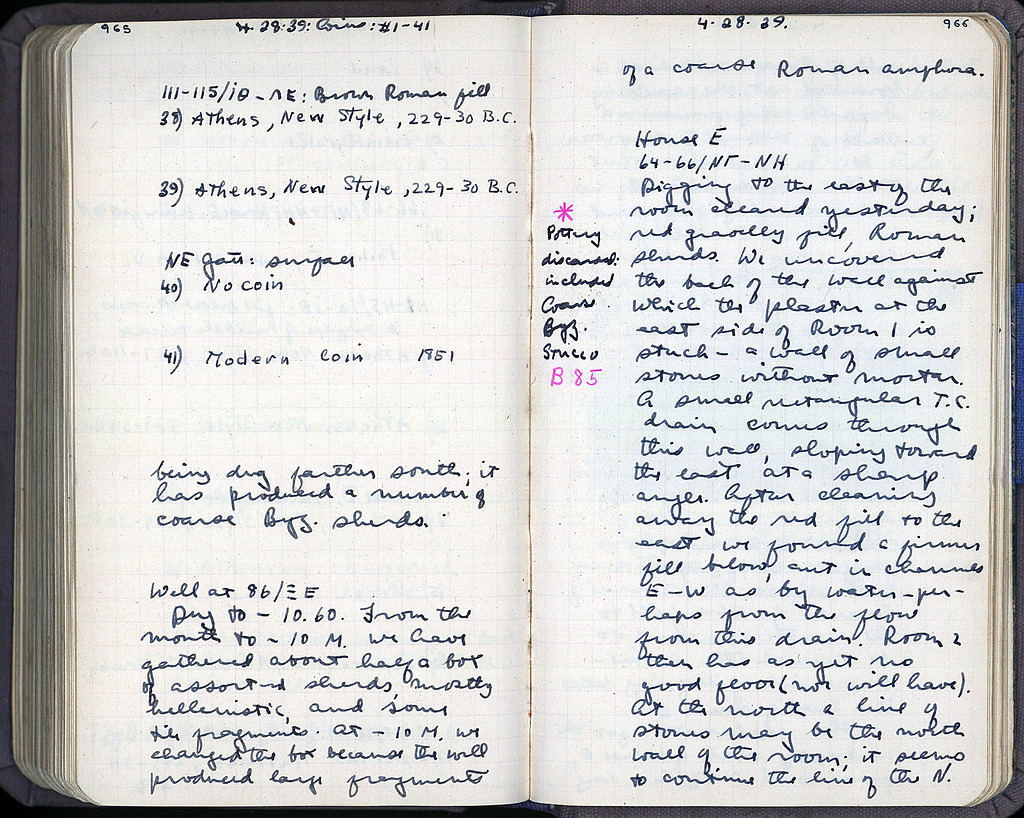 965
4·28·39: Coins: #1-41
111-115/ΙΘ-ΛΕ: Brown Roman fill
38) Athens, New Style, 229-30 B.C.
39) Athens, New Style, 229-30 B.C.
NE γωτ: surface
40) No coin
41) Modern coin 1851
being dug farther south; it
has produced a number of
coarse Byz. sherds.
Well at 86/ΞΕ
Dug to - 10.60. From the
mouth to - 10 M. we have
gathered about half a box
of assorted sherds, mostly
hellenistic, and some
tile fragments. At - 10 M. we
changed the box because the well
produced large fragments
4·28·39.
966
of a coarse Roman amphora.
House E
64-66/ΝΓ-ΝΗ
Digging to the east of the
room cleared yesterday;
red gravelly fill, Roman
sherds. We uncovered
the back of the wall against
which the plaster at the
east side of Room 1 is
stuck - a wall of small
stones without mortar.
A small rectangular T.C.
drain comes through
this wall, sloping toward
the east at a sharp
angle. After clearing
away the red fill to the
east we found a firmer
fill below, cut in channels
E-W as by water - per-
haps from the flow
from this drain. Room 2
then has as yet no
good floor (nor will have).
At the north a line of
stones may be the north
wall of the room; it seems
to continue the line of the N.
*
Pottery
discarded:
included
Coarse
Byz.
Stucco
B 85